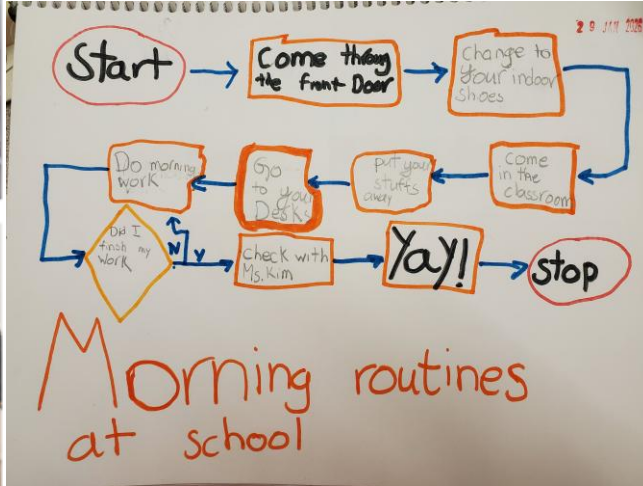 29 JAN 2026
Start
Come throug
the front Door
change to
your indoor
shoes
come
in the
classroom
put your
stuffs
away
Go
to your
Desk
Do morning
work
Did I
finish my
work
N
Y
check with
Ms. Kim
Yay!
stop
Morning routines
at school